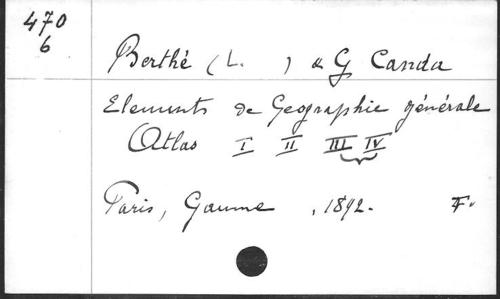 470
6
Berthé (L. ) & G Canda
Elements de Geographie générale
Atlas I II III IV
Paris, Gaume , 1892.